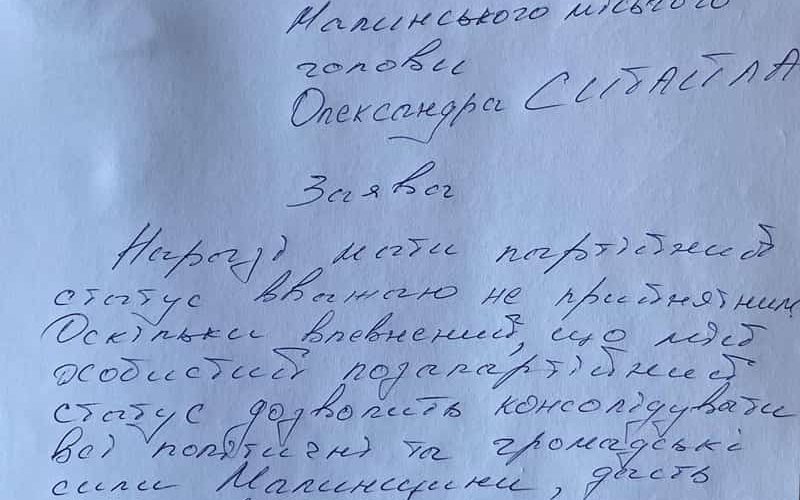 Малинського міського
голови
Олександра СИТАЙЛА
Заява
Наразі мати партійний
статус вважаю не прийнятним
Оскільки впевнений, що мій
особистий позапартійний
статус дозволить консолідувати
всі політичні та громадські
сили Малинщини, дасть